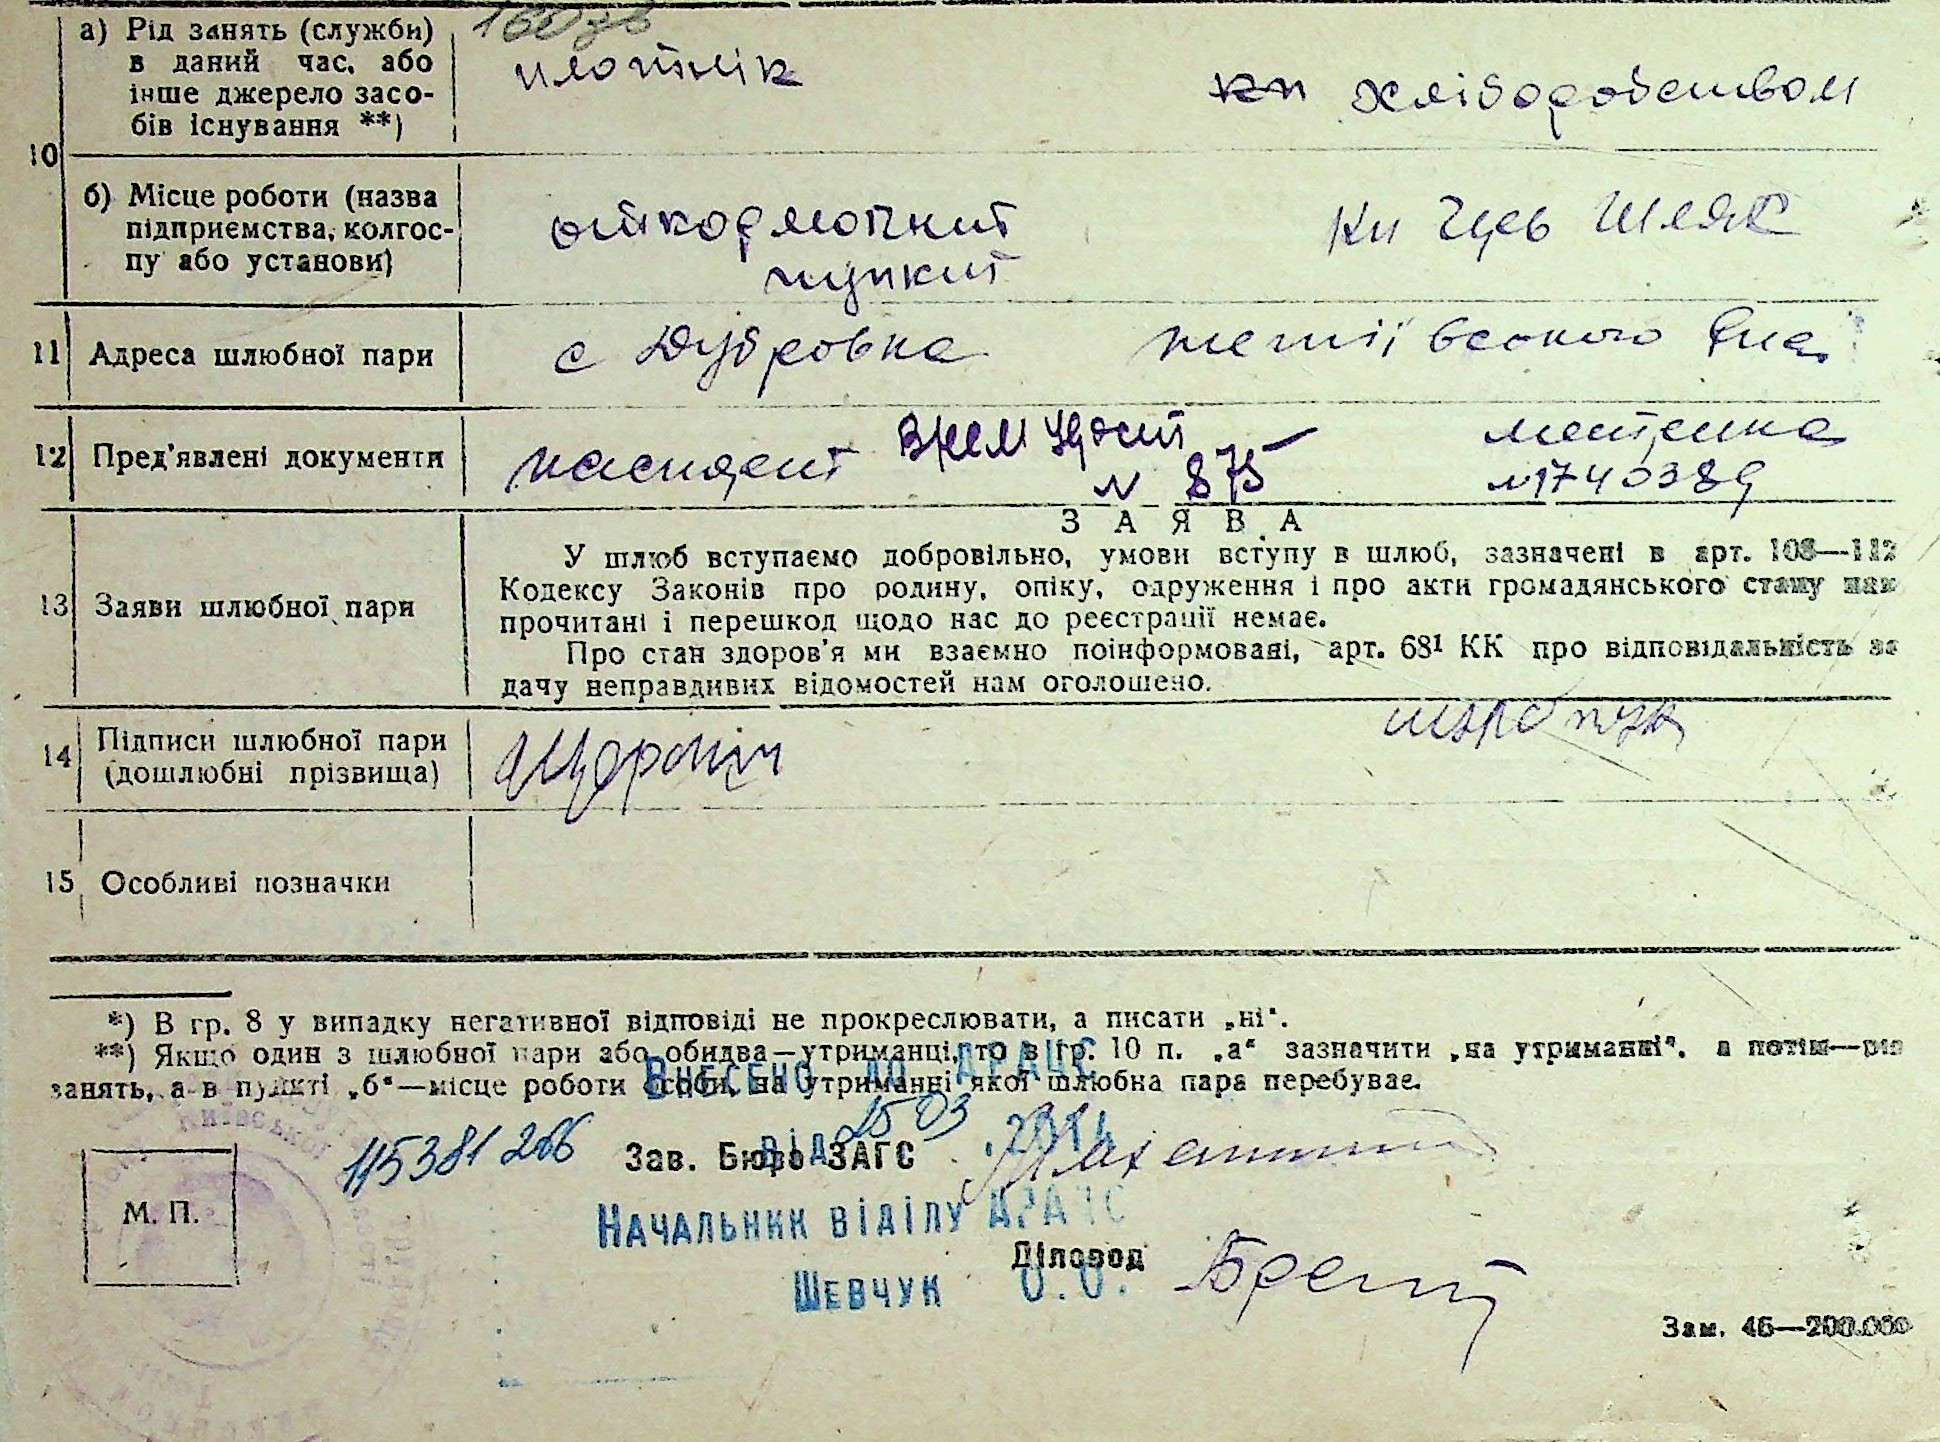 10
а) Рід занять (служби)
в даний час, або
інше джерело засо-
бів існування **)
плотнік
кп хліборобством
б) Місце роботи (назва
підприємства, колгос-
пу або установи)
откормочний
пункт
кп Шлях
11 Адреса шлюбної пари
с Дубровка
12 Пред'явлені документи
паспорт
Врем Удост
№ 875
метрика
№1740389
13 Заяви шлюбної пари
ЗАЯВА
У шлюб вступаємо добровільно, умови вступу в шлюб, зазначені в арт. 108—112
Кодексу Законів про родину, опіку, одруження і про акти громадянського стану нам
прочитані і перешкод щодо нас до реєстрації немає.
Про стан здоров'я ми взаємно поінформовані, арт. 68¹ КК про відповідальність за
дачу неправдивих відомостей нам оголошено.
14 Підписи шлюбної пари
(дошлюбні прізвища)
15 Особливі позначки
*) В гр. 8 у випадку негативної відповіді не прокреслювати, а писати „ні".
**) Якщо один з шлюбної пари або обидва—утриманці, то в гр. 10 п. „а" зазначити „на утриманні", а потім—рід
занять, а в пункті „б"—місце роботи особи, на утриманні якої шлюбна пара перебуває.
Внесено до ДРАЦС
від 25 03 .2014
115381266
Зав. Бюро ЗАГС
М. П.
Начальник відділу ДРАЦС
Діловод
Шевчук О.О.
Зам. 46—200.000